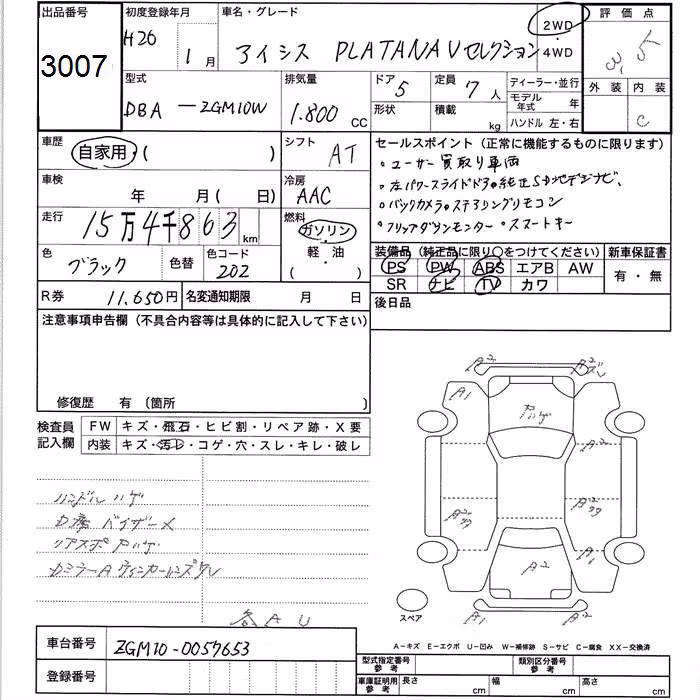 出品番号 初度登録年月 車名・グレード 2WD 評価点
3007 H26 1月 アイシス PLATANA Vセレクション 4WD 3.5
型式 排気量 ドア 5 定員 7人 ディーラー・並行 外装 内装
DBA-ZGM10W 1.800CC 形状 積載 kg モデル年式 年 C
ハンドル 左・右
車歴 自家用・( ) シフト AT セールスポイント(正常に機能するものに限ります)
・ユーザー買取り車両
車検 年 月(日) 冷房 AAC ・左パワースライドドア・純正SD地デジナビ、
走行 15万4千863km 燃料 ガソリン ・バックカメラ・ステアリングリモコン
軽・油 ・フリップダウンモニター ・スマートキー
色 ブラック 色替 色コード 202 ( )
装備品(純正品に限り〇をつけてください) 新車保証書
PS PW ABS エアB AW 有・無
SR ナビ TV カワ
R券 11,650円 名変通知期限 月 日 後日品
注意事項申告欄(不具合内容等は具体的に記入して下さい)
修復歴 有 (箇所 )
検査員記入欄 FW キズ・飛石・ヒビ割・リペア跡・X要
内装 キズ・汚レ・コゲ・穴・スレ・キレ・破レ
ハンドルハゲ
バイザーX
リアスポ
A U
A2 A2
A1
A2
A2
A1
A2
B1 A1
スペア
A-キズ E-エクボ U-凹み W-補修跡 S-サビ C-腐食 XX-交換済
車台番号 ZGM10-0057653
登録番号
型式指定番号参考 類別区分番号参考
車庫証明用参考 長さ cm 幅 cm 高さ cm